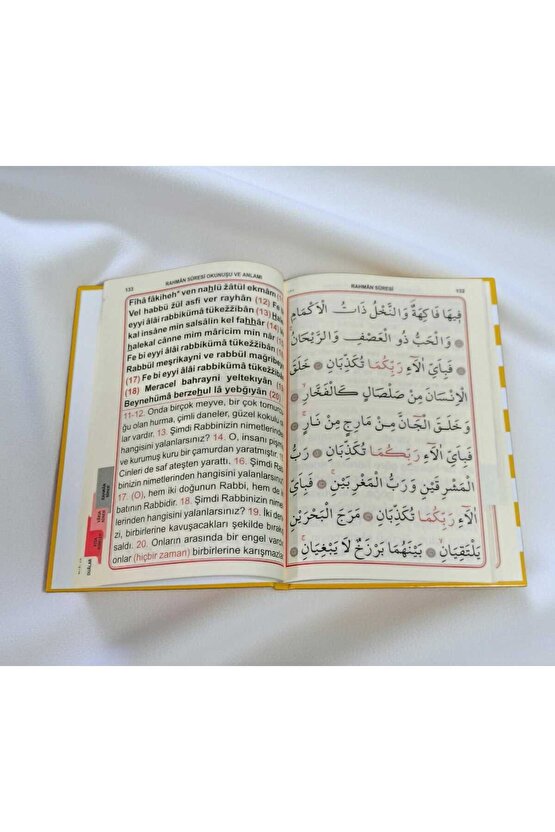 133
RAHMÂN SÛRESİ OKUNUŞU VE ANLAMI
Fîhâ fâkiheh" ven nahlü żâtül ekmâm
Vel habbü żül asfi ver rayhân (12) Fe
eyyi âlâi rabbikümâ tükeżżibân (13) Hale
kal insâne min salsâlin kel fahhâr (14)
halekal cânne mim mâricim min nâr
Fe bi eyyi âlâi rabbikümâ tükeżżibân
Rabbül meşrikayni ve rabbül mağribeyn
(17) Fe bi eyyi âlâi rabbikümâ tükeżżibân
(18) Meracel bahrayni yeltekıyân (19)
Beynehümâ berzehul lâ yebğıyân (20)
11-12. Onda birçok meyve, bir çok tomurcu
ğu olan hurma, çimli daneler, güzel kokulu
lar vardır. 13. Şimdi Rabbinizin nimetlerinden
hangisini yalanlarsınız? 14. O, insanı pişmiş
ve kurumuş kuru bir çamurdan yaratmıştır. 15.
Cinleri de saf ateşten yarattı. 16. Şimdi Rab
binizin nimetlerinden hangisini yalanlarsınız?
17. (O), hem iki doğunun Rabbi, hem de iki
batının Rabbidir. 18. Şimdi Rabbinizin nimet
lerinden hangisini yalanlarsınız? 19. İki deni
zi, birbirlerine kavuşacakları şekilde bırakıp
saldı. 20. Onların arasında bir engel vardır
onlar (hiçbir zaman) birbirlerine karışmazlar
RAHMÂN SÛRESİ
132
فِيهَا فَاكِهَةٌ وَالنَّخْلُ ذَاتُ الْاَكْمَامِ
وَالْحَبُّ ذُو الْعَصْفِ وَالرَّيْحَانُ
فَبِاَيِّ اٰلَٓاءِ رَبِّكُمَا تُكَذِّبَانِ خَلَقَ
الْاِنْسَانَ مِنْ صَلْصَالٍ كَالْفَخَّارِ
وَخَلَقَ الْجَٓانَّ مِنْ مَارِجٍ مِنْ نَارٍ
فَبِاَيِّ اٰلَٓاءِ رَبِّكُمَا تُكَذِّبَانِ رَبُّ
الْمَشْرِقَيْنِ وَرَبُّ الْمَغْرِبَيْنِ فَبِاَيِّ
اٰلَٓاءِ رَبِّكُمَا تُكَذِّبَانِ مَرَجَ الْبَحْرَيْنِ
يَلْتَقِيَانِ بَيْنَهُمَا بَرْزَخٌ لَا يَبْغِيَانِ